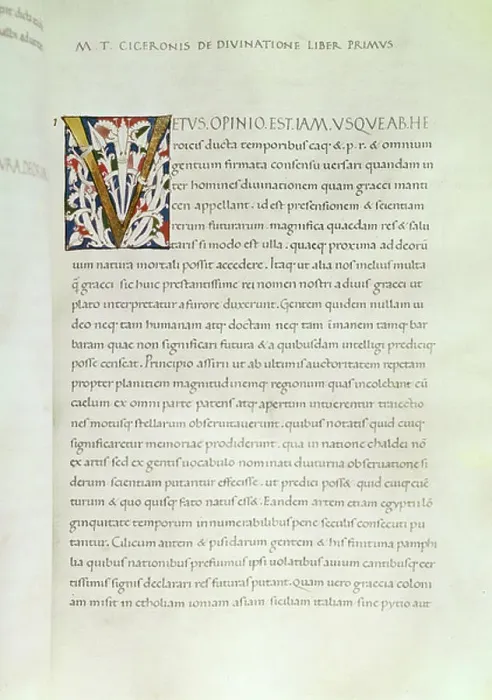 M. T. CICERONIS DE DIVINATIONE LIBER PRIMVS
VETVS. OPINIO. EST. IAM. VSQVE AB. HE
roicis ducta temporibus eaq; & .p. r. & omnium
gentium firmata consensu uersari quandam in
ter homines diuinationem quam graeci manti
cen appellant. id est presensionem & scientiam
rerum futurarum. magnifica quaedam res & salu
taris si modo est ulla. quaeq; proxima ad deorū
uim natura mortali possit accedere. Itaq; ut alia nos melius multa
q̄ graeci sic huic prestantissime rei nomen nostri a diuis graeci ut
plato interpretatur a furore duxerunt. Gentem quidem nullam ui
deo neq; tam humanam atq; doctam neq; tam īmanem tamq; bar
baram quae non significari futura & a quibusdam intelligi prediciq;
posse censeat. Principio assirii ut ab ultimis auctoritatem repetam
propter planitiem magnitudinemq; regionum quas incolebant cū
caelum ex omni parte patens atq; apertum intuerentur traiectio
nes motusq; stellarum obseruitauerunt. quibus notatis quid cuiq;
significaretur memoriae prodiderunt. qua in natione chaldei nō
ex artis sed ex gentis uocabulo nominati diuturna obseruatione si
derum scientiam putantur effecisse. ut predici poss& quid cuiq; cuē
turum & quo quisq; fato natus ess&. Eandem artem etiam egyptii lō
ginquitate temporum innumerabilibus pene seculis consecuti pu
tantur. Cilicum autem & pisidarum gentem & his finituma pamphi
lia quibus nationibus prefuimus ipsi uolatibus auium cantibusq; cer
tissimis signis declarari res futuras putant. Quam uero graecia coloni
am misit in etholiam ioniam asiam siciliam italiam sine pytio aut